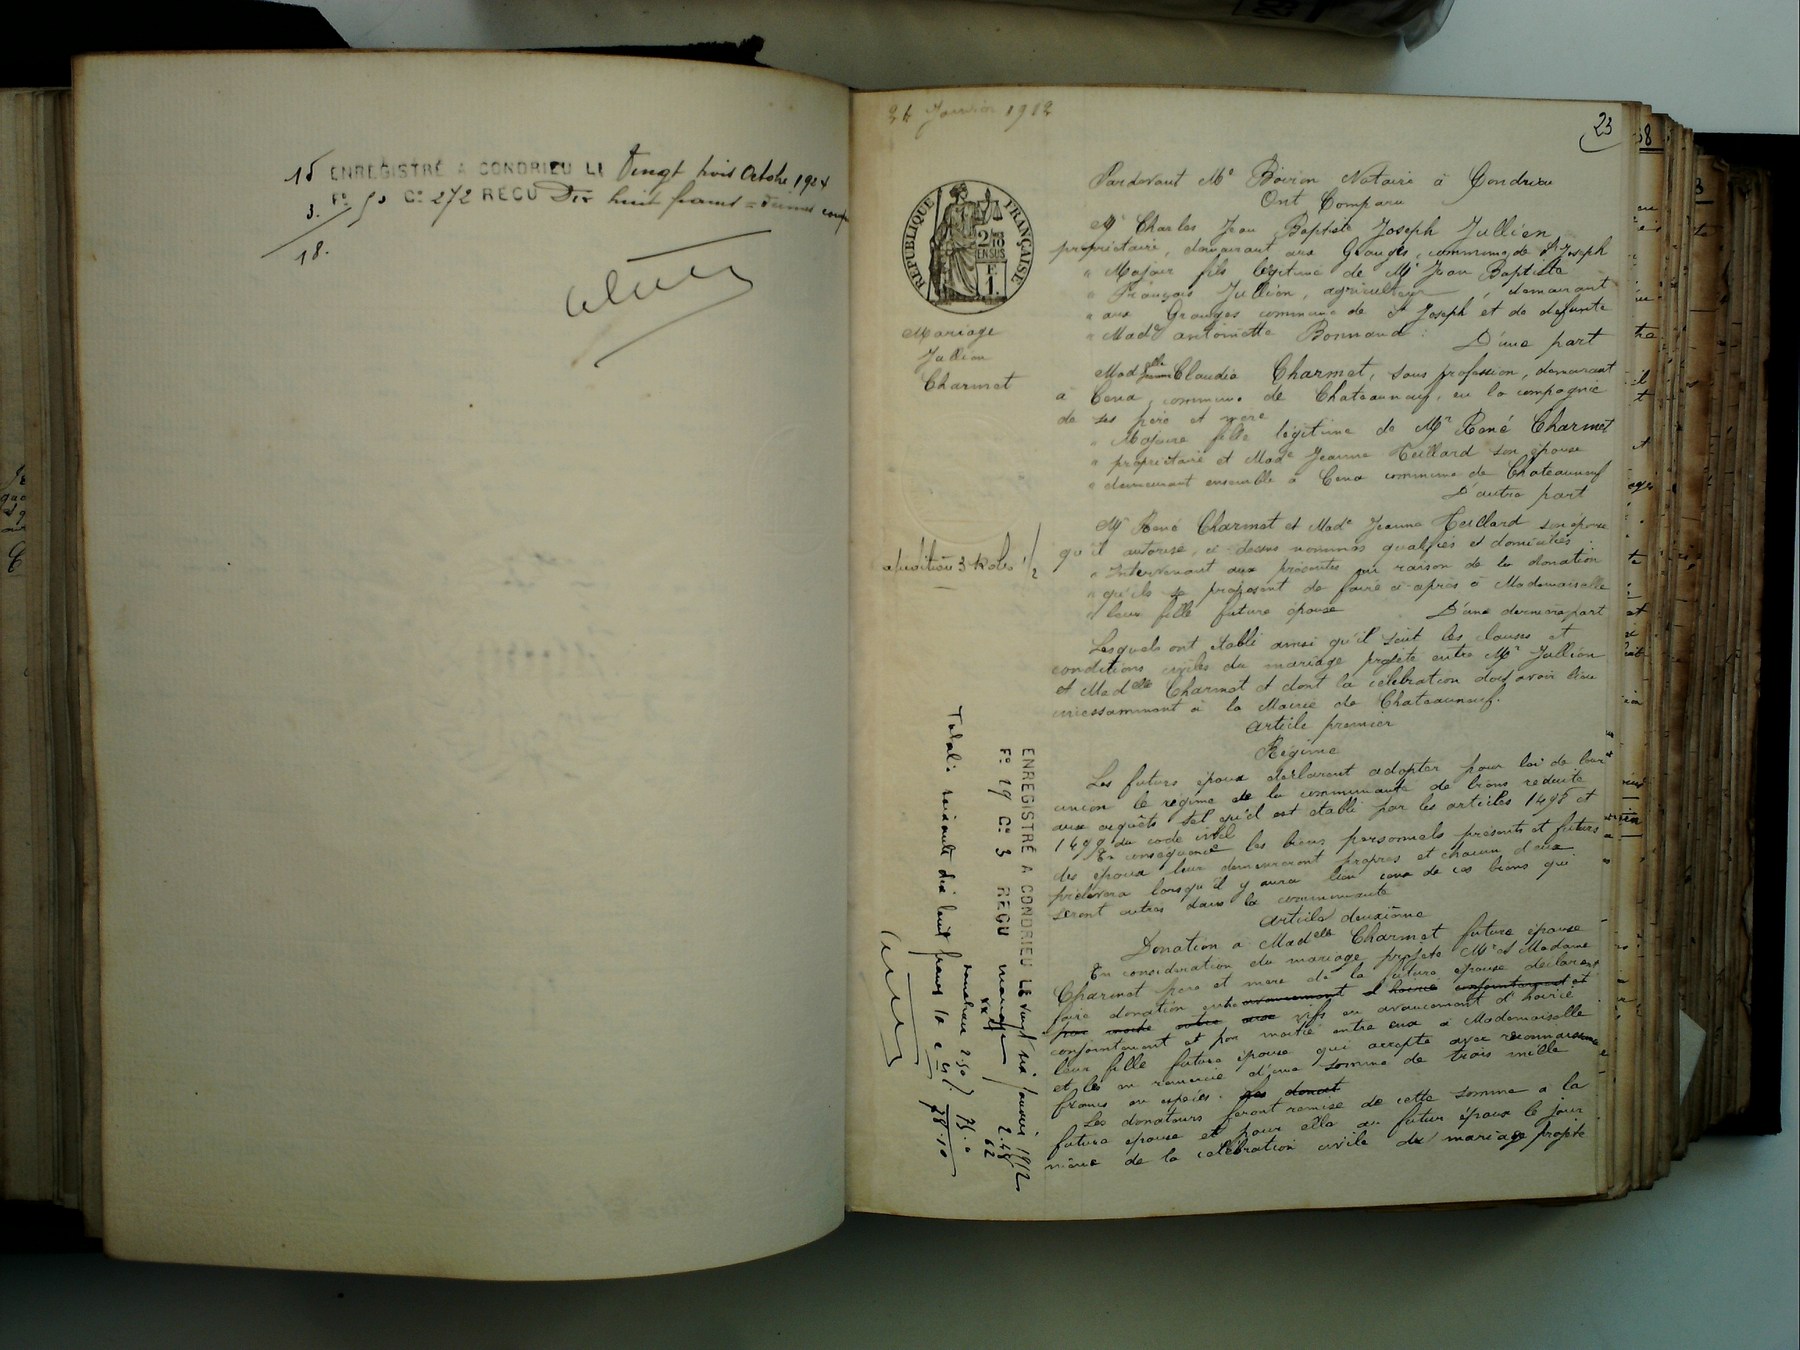 15 ENREGISTRÉ A CONDRIEU LE Vingt trois Octobre 1924
3. F° 50 C° 272 REÇU Dix huit francs
18.
24 Janvier 1912
23
RÉPUBLIQUE FRANÇAISE
2/10 EN SUS
1 F.
Mariage
Jullien
Charmet
Pardevant Me Boiron Notaire à Condrieu
Ont Comparu
Mr Charles Jean Baptiste Joseph Jullien
propriétaire, demeurant aux Granges, commune de St Joseph
" Majeur fils légitime de Mr Jean Baptiste
" François Jullien, agriculteur, demeurant
" aux Granges commune de St Joseph et de défunte
" Made antoinette Bonnand : D'une part
Madelle Claudia Charmet, sans profession, demeurant
à commune de Chateauneuf, en la compagnie
de ses père et mère
" Majeure fille légitime de Mr René Charmet
" propriétaire et Made Jeanne Teillard son épouse
" demeurant ensemble à commune de Chateauneuf
D'autre part
Mr René Charmet et Made Jeanne Teillard son épouse
qu'il autorise, ci dessus nommés qualifiés et domiciliés
" Intervenant aux présentes en raison de la donation
" qu'ils se proposent de faire ci-après à Mademoiselle
" leur fille future épouse D'une dernière part
expédition 3 Roles 1/2
Lesquels ont établi ainsi qu'il suit les clauses et
conditions civiles du mariage projeté entre Mr Jullien
et Madelle Charmet et dont la célébration doit avoir lieu
incessamment à la Mairie de Chateauneuf.
Article premier
Régime
Les futurs époux déclarent adopter pour loi de leur
union le régime de la communauté de biens réduite
aux acquêts tel qu'il est établi par les articles 1498 et
1499 du code civil
En conséquence les biens personnels présents et futurs
des époux leur demeureront propres et chacun d'eux
prélèvera lorsqu'il y aura lieu ceux de ces biens qui
seront entrés dans la communauté
Article deuxième
Donation à Madelle Charmet future épouse
En considération du mariage projeté Mr et Madame
Charmet père et mère de la future épouse déclarent
faire donation entre avancement d'hoirie conjointement et
par moitié entre eux vifs en avancement d'hoirie
conjointement et par moitié entre eux à Mademoiselle
leur fille future épouse qui accepte avec reconnaissance
et les en remercie d'une somme de trois mille
francs en espèces. Les donat
Les donateurs feront remise de cette somme à la
future épouse et pour elle au futur époux le jour
même de la célébration civile du mariage projeté
ENREGISTRÉ A CONDRIEU LE vingt six janvier 1912
F° 19 C° 3 REÇU mariage
Total: soixante dix huit francs 10 c
78.10